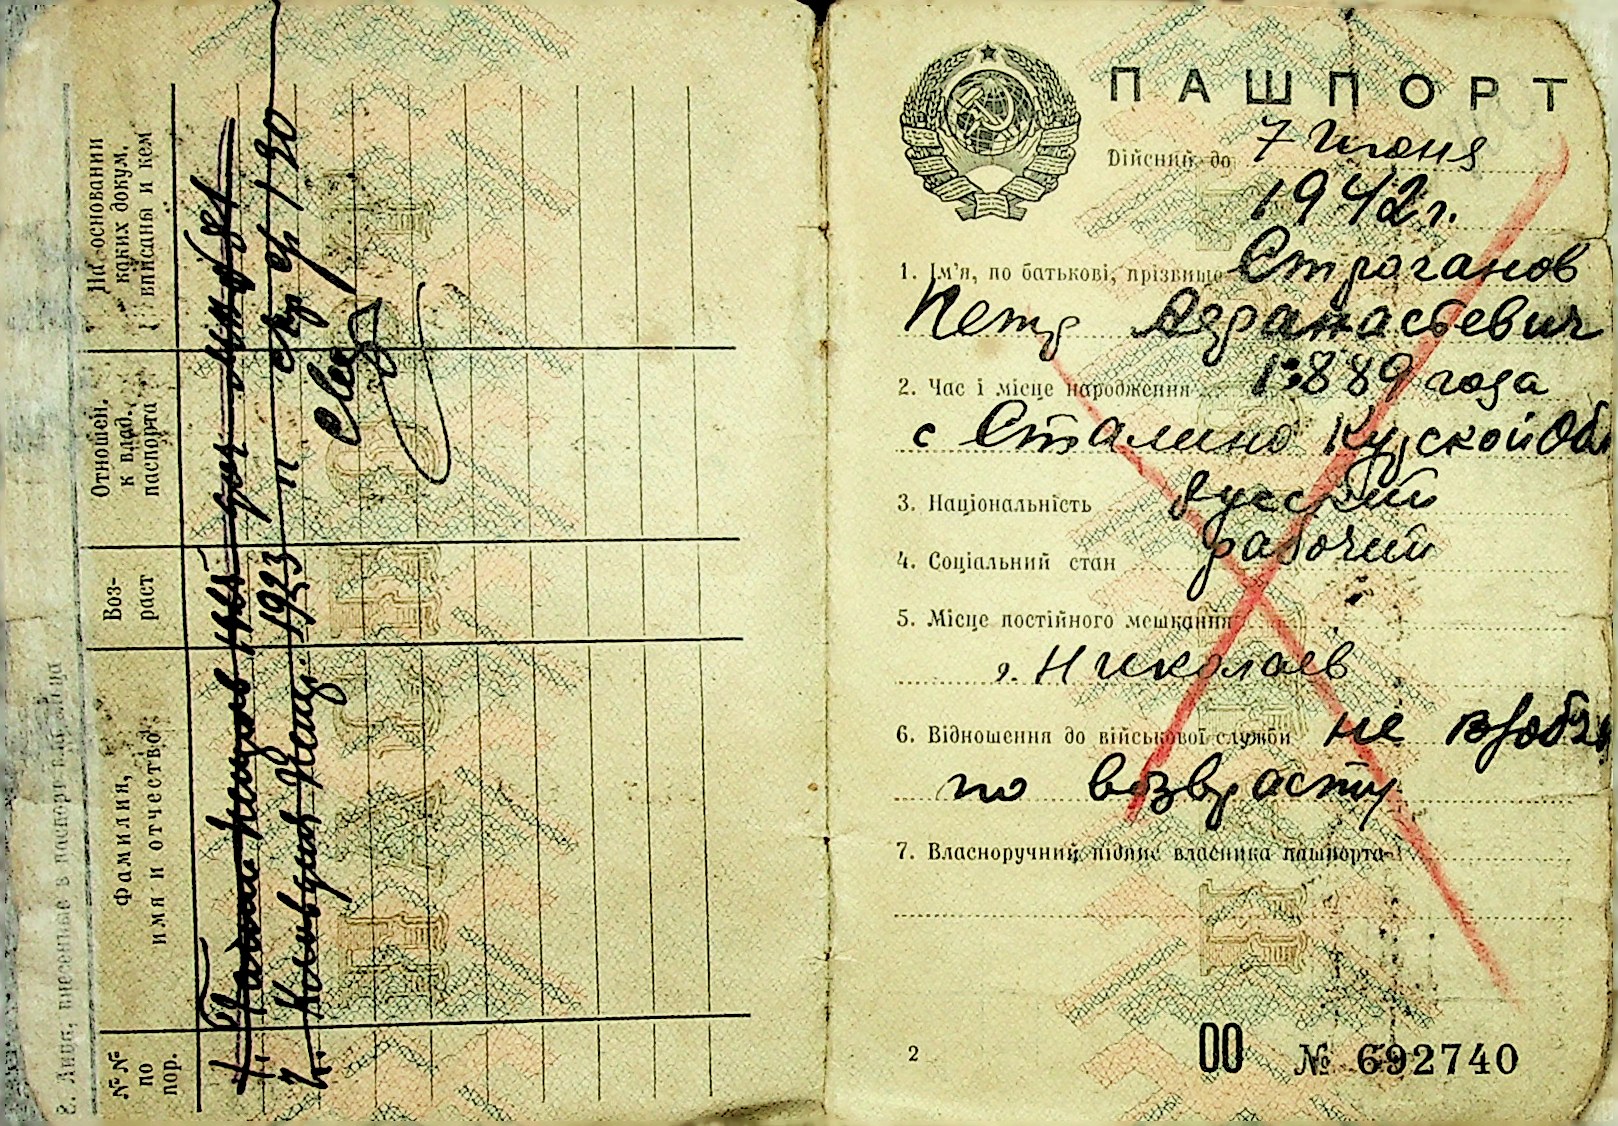 8. Лица, внесенные в паспорт владельца
№№ по пор.
Фамилия, имя и отчество
Воз-раст
Отношен. к влад. паспорта
На основании каких докум. вписаны и кем
2. 1923
ПАШПОРТ
Дійсний до 7 июня
1942 г.
1. Ім'я, по батькові, прізвище Строганов
Петр Афанасьевич
2. Час і місце народження 1889 года
с Сталино Курской Обл
3. Національність русский
4. Соціальний стан рабочий
5. Місце постійного мешкання
г. Николаев
6. Відношення до військової служби не
по возврасту
7. Власноручний підпис власника пашпорта
2
00 № 692740